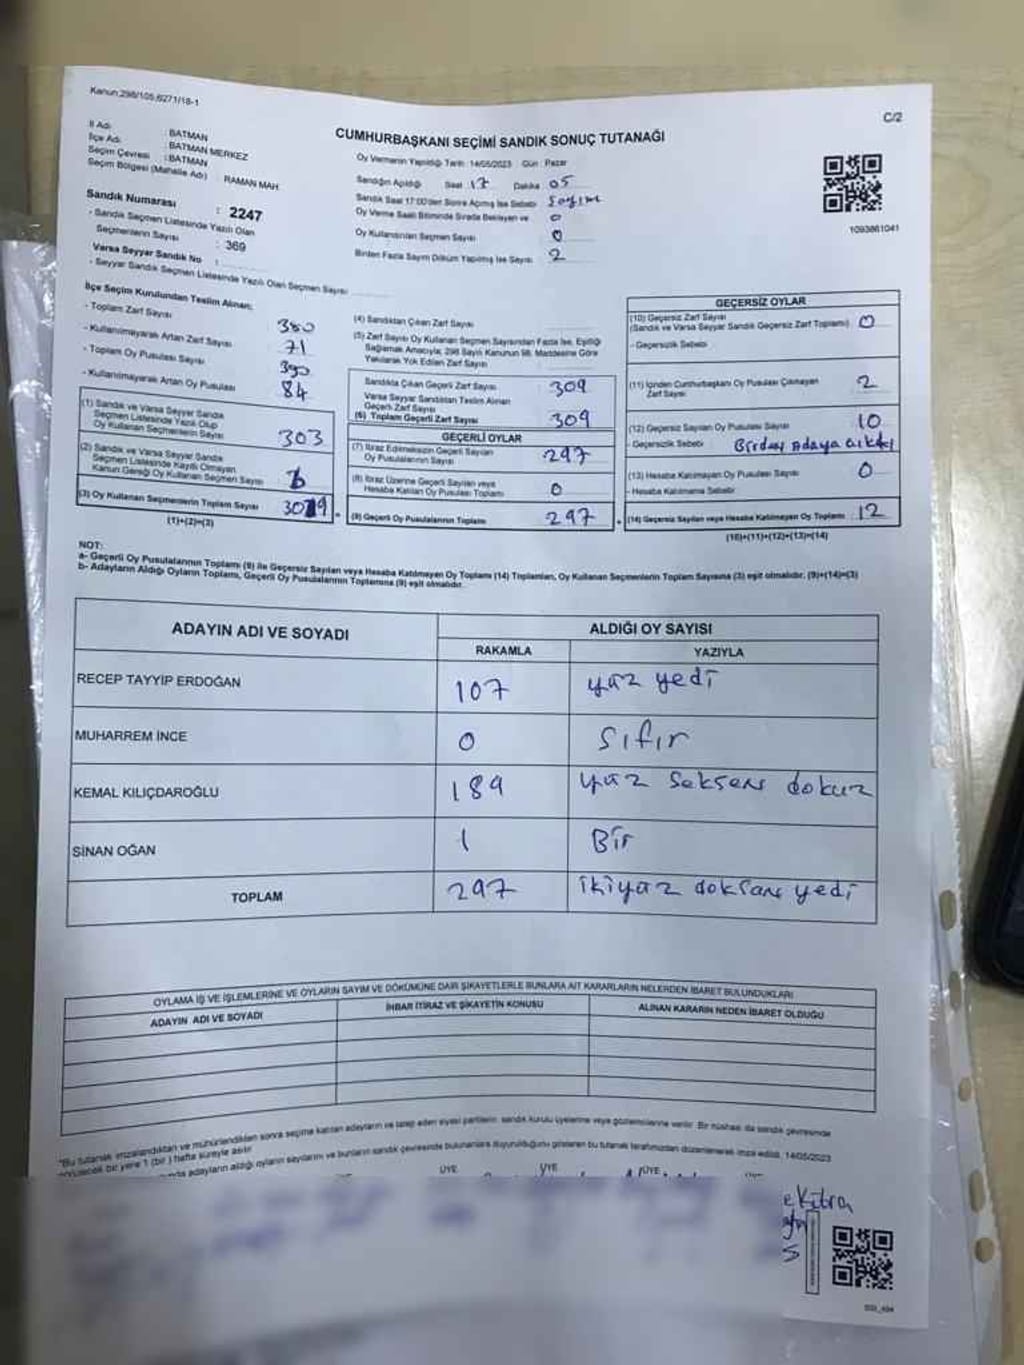 Kanun;298/105,6271/18-1
C/2
CUMHURBAŞKANI SEÇİMİ SANDIK SONUÇ TUTANAĞI
İl Adı : BATMAN
İlçe Adı : BATMAN MERKEZ
Seçim Çevresi : BATMAN
Seçim Bölgesi (Mahalle Adı) : RAMAN MAH.
Sandık Numarası : 2247
- Sandık Seçmen Listesinde Yazılı Olan
Seçmenlerin Sayısı : 369
Varsa Seyyar Sandık No :
- Seyyar Sandık Seçmen Listesinde Yazılı Olan Seçmen Sayısı
Oy Vermenin Yapıldığı Tarih: 14/05/2023 Gün : Pazar
Sandığın Açıldığı Saat 17 Dakika 05
Sandık Saat 17:00'den Sonra Açılmış İse Sebebi Sayım
Oy Verme Saati Bitiminde Sırada Bekleyen ve 0
Oy Kullandırılan Seçmen Sayısı 0
Birden Fazla Sayım Döküm Yapılmış İse Sayısı 2
1093861041
İlçe Seçim Kurulundan Teslim Alınan:
- Toplam Zarf Sayısı 380
- Kullanılmayarak Artan Zarf Sayısı 71
- Toplam Oy Pusulası Sayısı 390
- Kullanılmayarak Artan Oy Pusulası 84
(1) Sandık ve Varsa Seyyar Sandık
Seçmen Listesinde Yazılı Olup
Oy Kullanan Seçmenlerin Sayısı 303
(2) Sandık ve Varsa Seyyar Sandık
Seçmen Listesinde Kayıtlı Olmayan
Kanun Gereği Oy Kullanan Seçmen Sayısı
(3) Oy Kullanan Seçmenlerin Toplam Sayısı
(1)+(2)=(3)
(4) Sandıktan Çıkan Zarf Sayısı
(5) Zarf Sayısı Oy Kullanan Seçmen Sayısından Fazla İse, Eşitliği
Sağlamak Amacıyla; 298 Sayılı Kanunun 98. Maddesine Göre
Yakılarak Yok Edilen Zarf Sayısı
Sandıkta Çıkan Geçerli Zarf Sayısı 309
Varsa Seyyar Sandıktan Teslim Alınan
Geçerli Zarf Sayısı
(6) Toplam Geçerli Zarf Sayısı 309
GEÇERLİ OYLAR
(7) İtiraz Edilmeksizin Geçerli Sayılan
Oy Pusulalarının Sayısı 297
(8) İtiraz Üzerine Geçerli Sayılan veya
Hesaba Katılan Oy Pusulası Toplamı 0
(9) Geçerli Oy Pusulalarının Toplamı 297
GEÇERSİZ OYLAR
(10) Geçersiz Zarf Sayısı
(Sandık ve Varsa Seyyar Sandık Geçersiz Zarf Toplamı) 0
- Geçersizlik Sebebi
(11) İçinden Cumhurbaşkanı Oy Pusulası Çıkmayan
Zarf Sayısı 2
(12) Geçersiz Sayılan Oy Pusulası Sayısı 10
- Geçersizlik Sebebi Birden Adaya
(13) Hesaba Katılmayan Oy Pusulası Sayısı 0
- Hesaba Katılmama Sebebi
(14) Geçersiz Sayılan veya Hesaba Katılmayan Oy Toplamı 12
(10)+(11)+(12)+(13)=(14)
NOT:
a- Geçerli Oy Pusulalarının Toplamı (9) ile Geçersiz Sayılan veya Hesaba Katılmayan Oy Toplamı (14) Toplamları, Oy Kullanan Seçmenlerin Toplam Sayısına (3) eşit olmalıdır. (9)+(14)=(3)
b- Adayların Aldığı Oyların Toplamı, Geçerli Oy Pusulalarının Toplamına (9) eşit olmalıdır.
ADAYIN ADI VE SOYADI
ALDIĞI OY SAYISI
RAKAMLA YAZIYLA
RECEP TAYYİP ERDOĞAN 107 yüz yedi
MUHARREM İNCE 0 Sıfır
KEMAL KILIÇDAROĞLU 189 yüz Seksen dokuz
SİNAN OĞAN 1 Bir
TOPLAM 297 ikiyüz doksan yedi
OYLAMA İŞ VE İŞLEMLERİNE VE OYLARIN SAYIM VE DÖKÜMÜNE DAİR ŞİKAYETLERLE BUNLARA AİT KARARLARIN NELERDEN İBARET BULUNDUKLARI
ADAYIN ADI VE SOYADI İHBAR İTİRAZ VE ŞİKAYETİN KONUSU ALINAN KARARIN NEDEN İBARET OLDUĞU
*Bu tutanak imzalandıktan ve mühürlendikten sonra seçime katılan adayların ve talep eden siyasi partilerin sandık kurulu üyelerine veya gözlemcilerine verilir. Bir nüshası da sandık çevresinde
bir yere 1 (bir) hafta süreyle asılır.
adayların aldığı oyların sayılarını ve bunların sandık çevresinde bulunanlara duyurulduğunu gösteren bu tutanak tarafımızdan düzenlenerek imza edildi. 14/05/2023
ÜYE ÜYE ÜYE